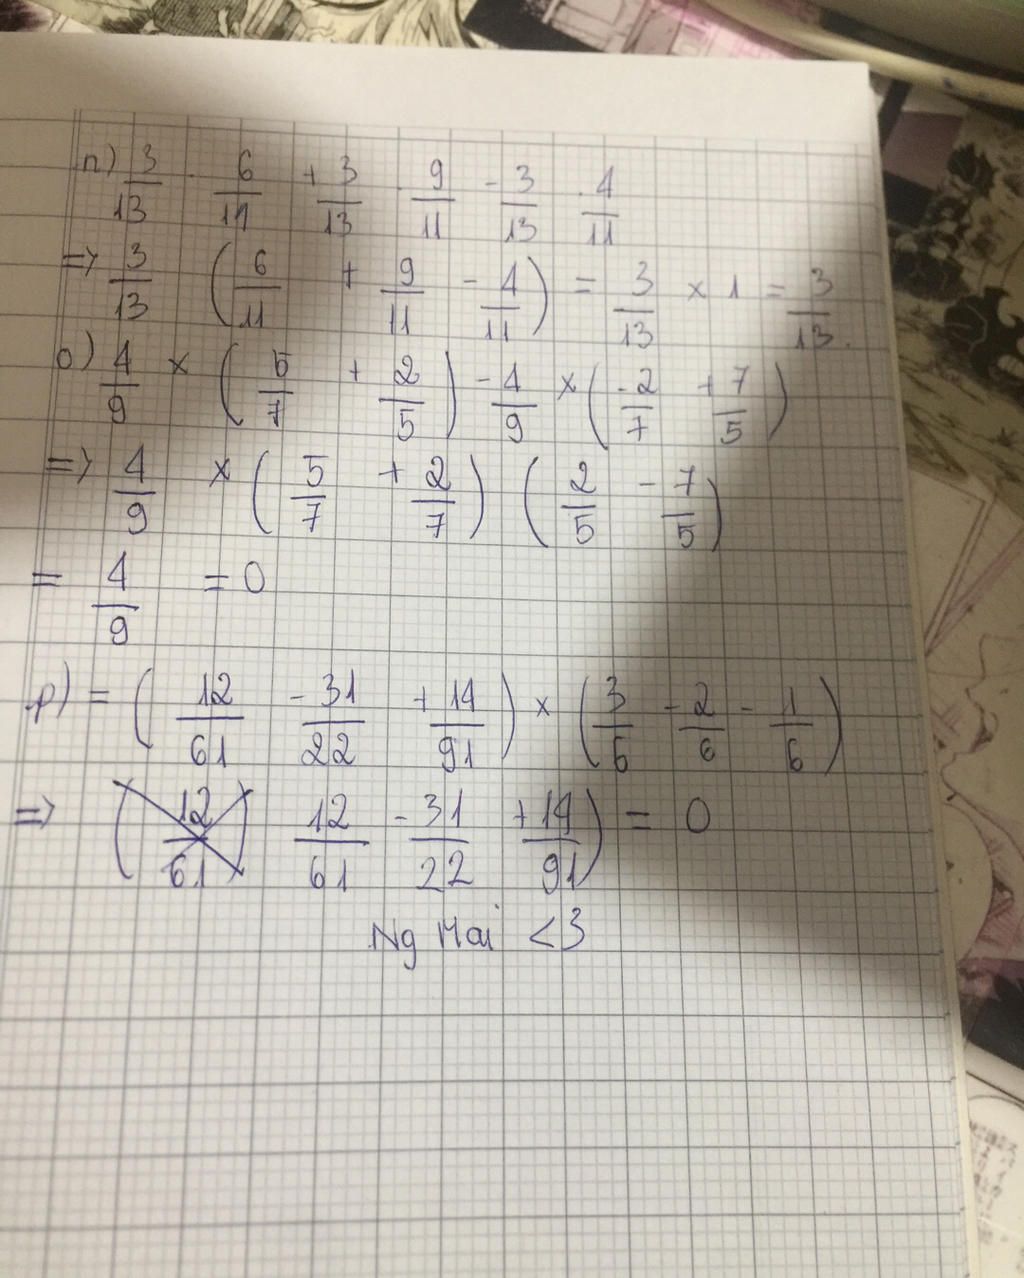 n) 3/13 . 6/11 + 3/13 . 9/11 - 3/13 . 4/11
=> 3/13 (6/11 + 9/11 - 4/11) = 3/13 × 1 = 3/13.
o) 4/9 × (5/7 + 2/5) - 4/9 × (-2/7 + 7/5)
=> 4/9 × (5/7 + 2/7) (2/5 - 7/5)
= 4/9 = 0
p) = (12/61 - 31/22 + 14/91) × (3/6 - 2/6 - 1/6)
=> (12/61) 12/61 - 31/22 + 14/91) = 0
Ng Mai <3